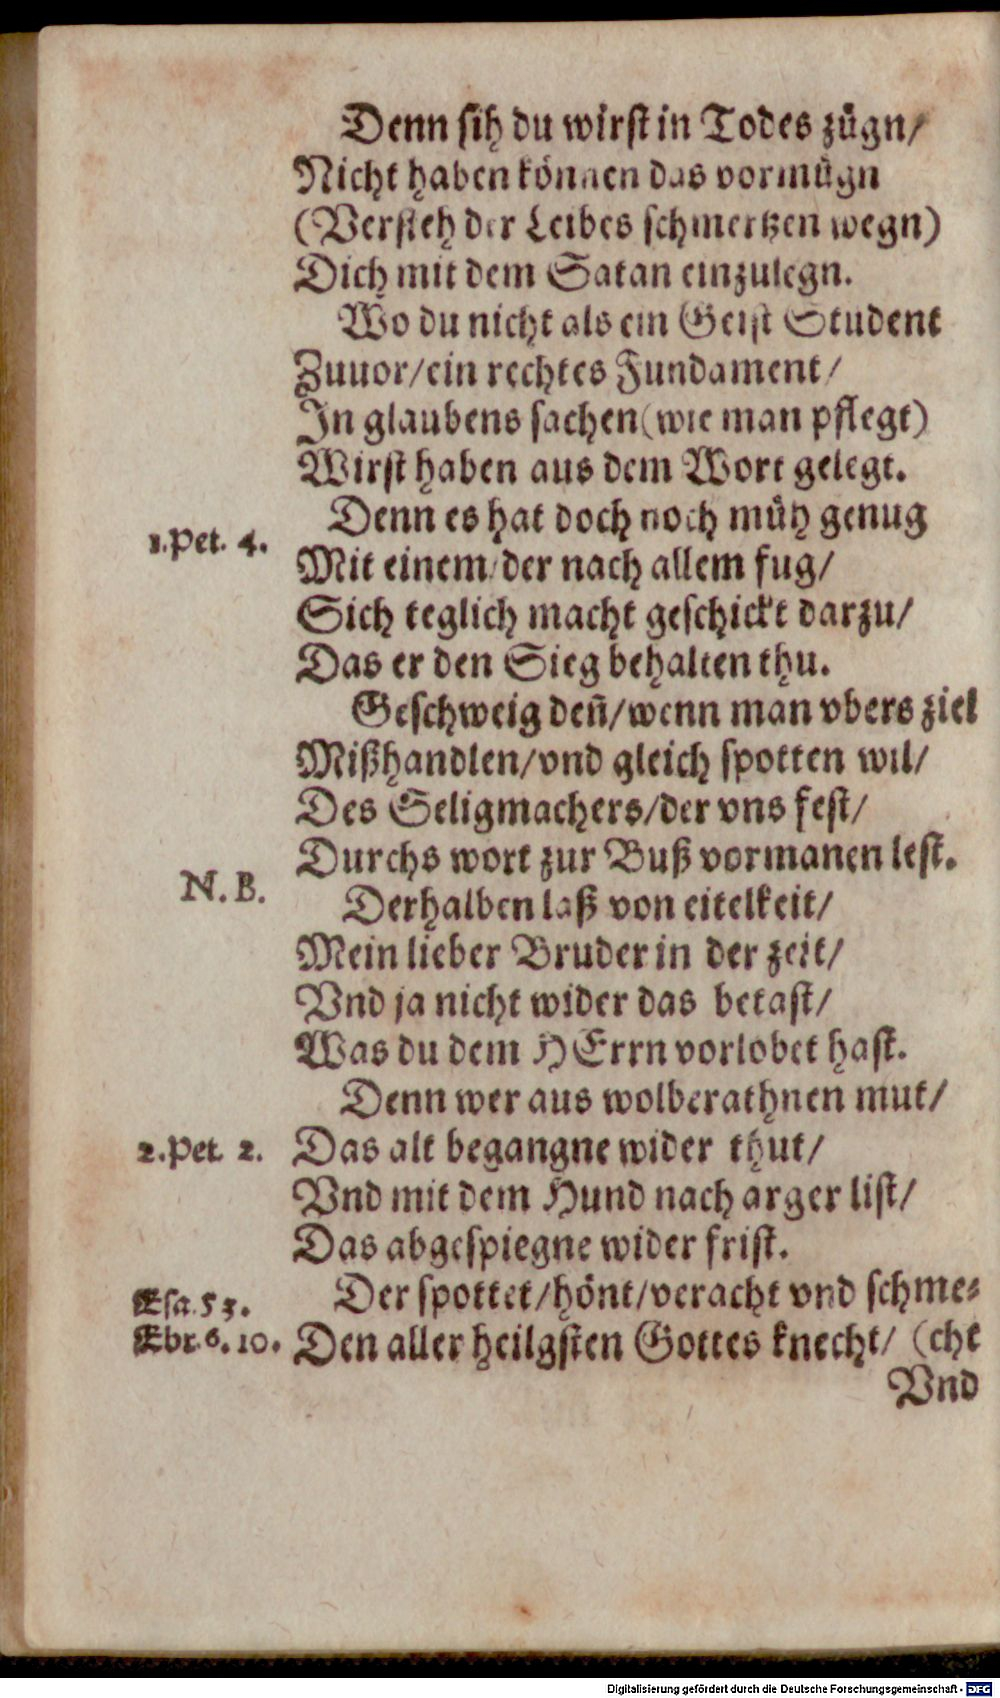 Denn sih du wirst in Todes zügn/
Nicht haben können das vormügn
(Versteh der Leibes schmertzen wegn)
Dich mit dem Satan einzulegn.
Wo du nicht als ein Geist Student
Zuuor/ein rechtes Fundament/
In glaubens sachen (wie man pflegt)
Wirst haben aus dem Wort gelegt.
Denn es hat doch noch müh genug
1.Pet. 4.
Mit einem/der nach allem fug/
Sich teglich macht geschickt darzu/
Das er den Sieg behalten thu.
Geschweig deñ/wenn man vbers ziel
Mißhandlen/vnd gleich spotten wil/
Des Seligmachers/der vns fest/
Durchs wort zur Buß vormanen lest.
N.B.
Derhalben laß von eitelkeit/
Mein lieber Bruder in der zeit/
Vnd ja nicht wider das betast/
Was du dem HErrn vorlobet hast.
Denn wer aus wolberathnen mut/
2.Pet. 2.
Das alt begangne wider thut/
Vnd mit dem Hund nach arger list/
Das abgespiegne wider frist.
Esa.53.
Der spottet/hönt/veracht vnd schme⸗
Ebr.6.10.
Den aller heilgsten Gottes knecht/ (cht
Vnd
Digitalisierung gefördert durch die Deutsche Forschungsgemeinschaft - DFG